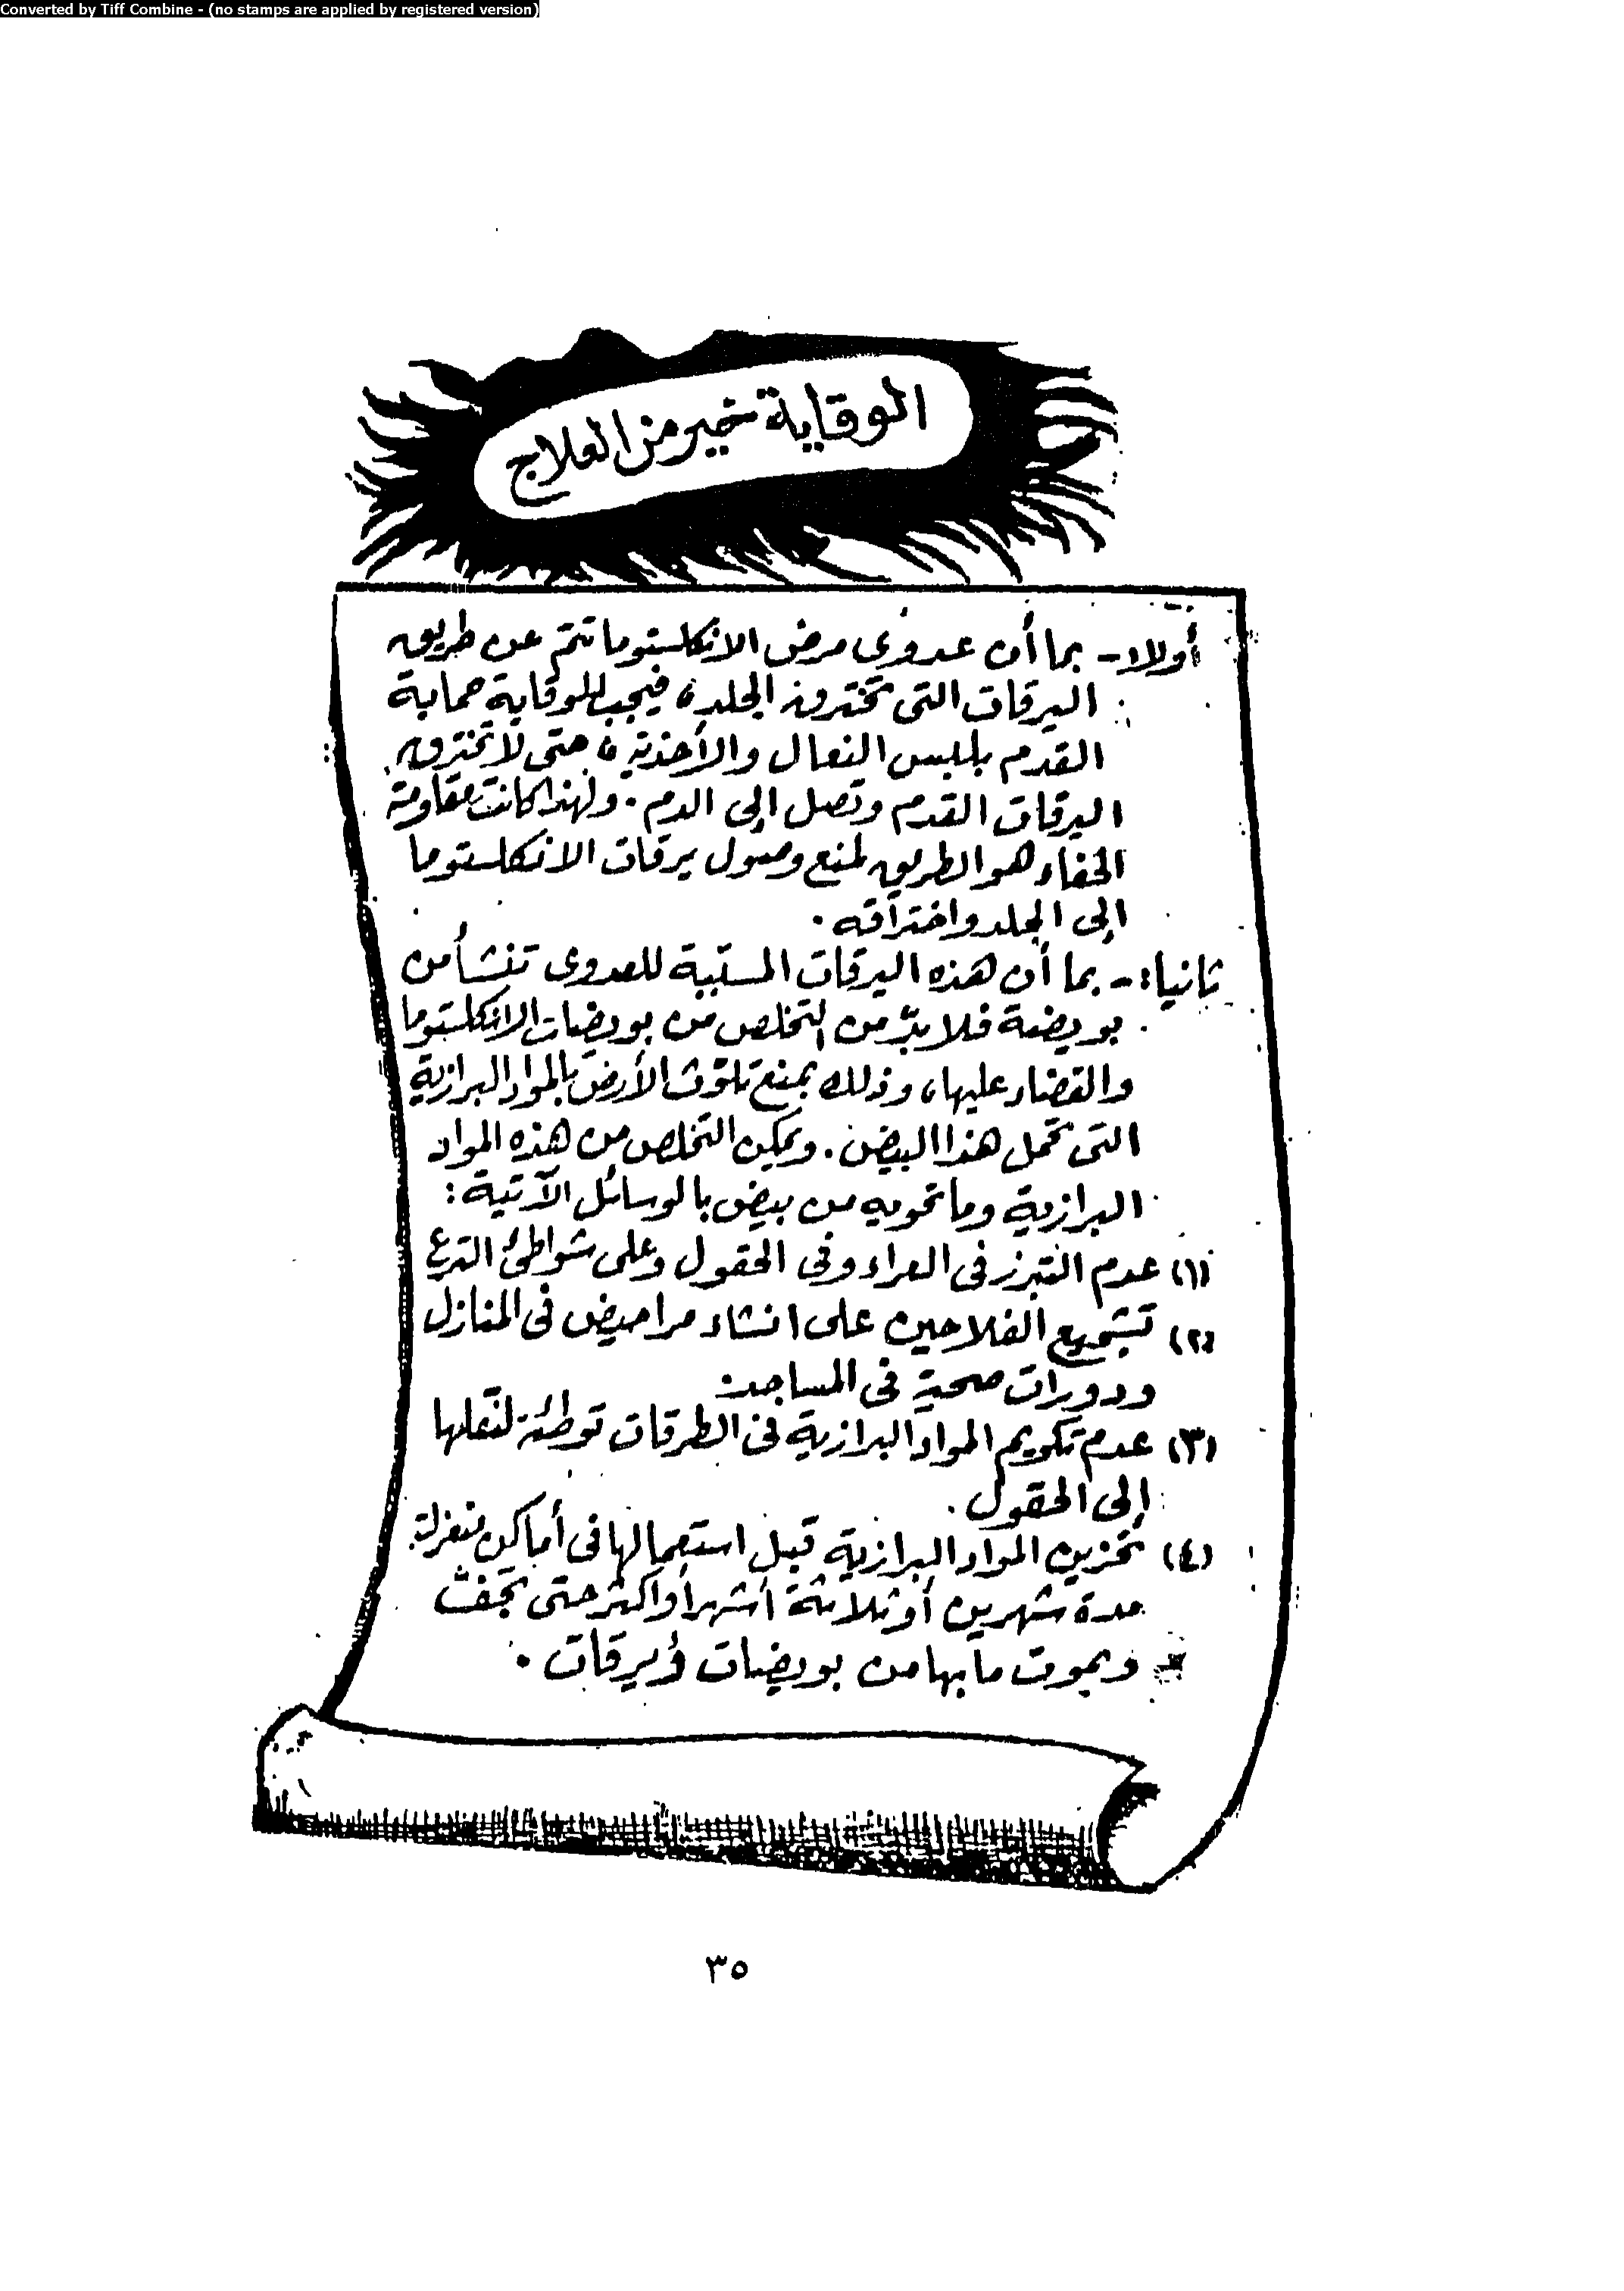 Converted by Tiff Combine - (no stamps are applied by registered version)
الوقاية خير من العلاج
أولا:- بما أن عدوى مرض الانكلستوما تتم عن طريق
اليرقات التى تخترق الجلد، فيجب للوقاية حماية
القدم بلبس النعال والأحذية، حتى لا تخترق
اليرقات القدم وتصل إلى الدم. ولهذا كانت مقاومة
الحفاء هو الطريق لمنع وصول يرقات الانكلستوما
إلى الجلد واختراقه.
ثانيا:- بما أن هذه اليرقات المسببة للعدوى تنشأ من
بويضة فلا بدّ من التخلص من بويضات الانكلستوما
والقضاء عليها، وذلك بمنع تلوّث الأرض بالمواد البرازية
التى تحمل هذا البيض. ويمكن التخلص من هذه المواد
البرازية وما تحويه من بيض بالوسائل الآتية:
(١) عدم التبرز فى العراء وفى الحقول وعلى شواطئ الترع
(٢) تشجيع الفلاحين على انشاء مراحيض فى المنازل
ودورات صحية فى المساجد.
(٣) عدم تكويم المواد البرازية فى الطرقات توطئة لنقلها
إلى الحقول.
(٤) تخزين المواد البرازية قبل استعمالها فى أماكن منعزلة
مدة شهرين أو ثلاثة أشهر أو أكثر حتى تجف
ويموت ما بها من بويضات ويرقات.
٣٥